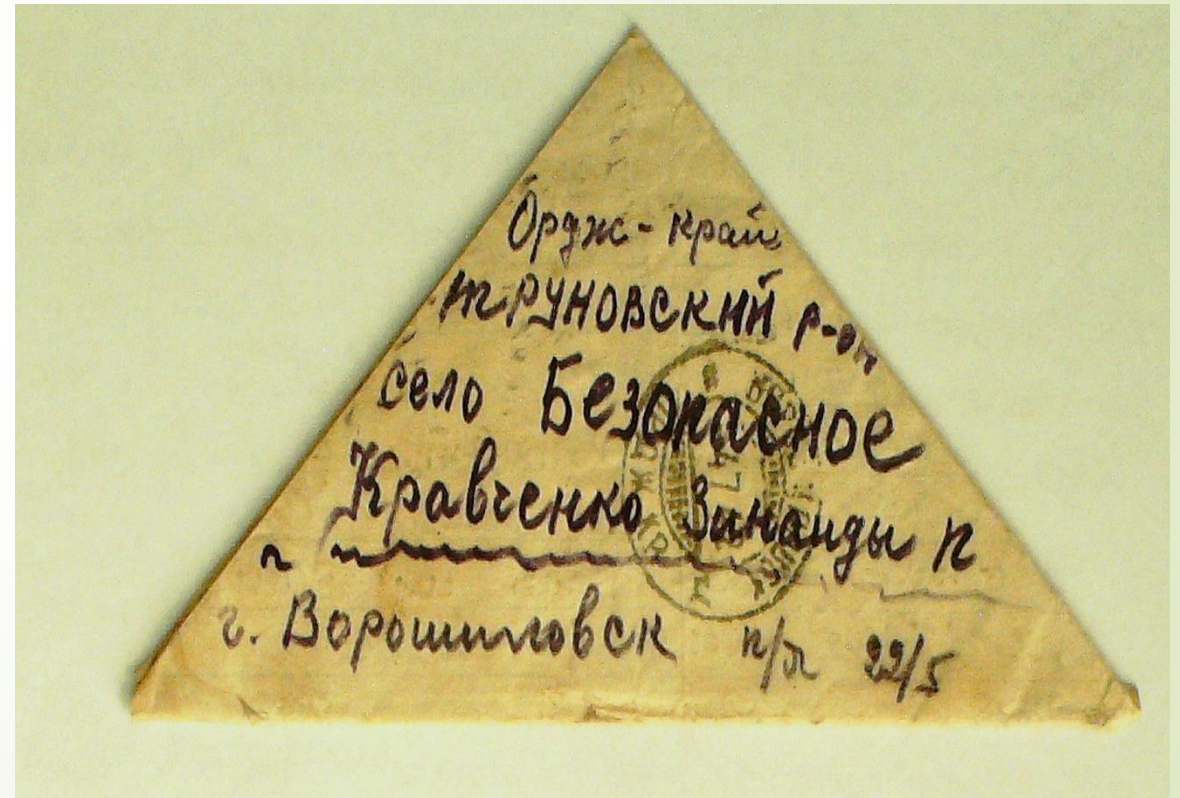 Ордж-край
труновский р-он
село Безопасное
Кравченко Зинаиды п
г. Ворошиловск п/я 22/5